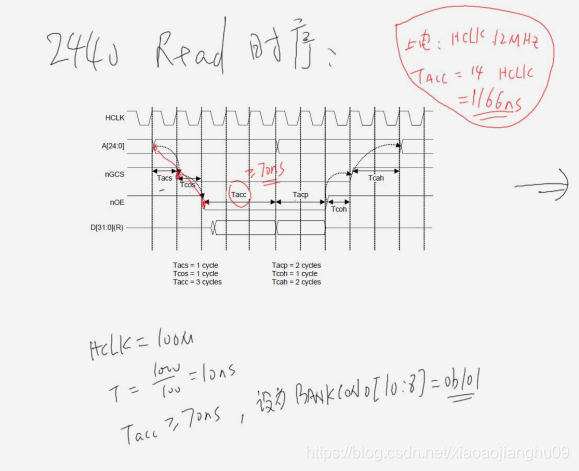 2440 Read 时序:
上电: HCLK 12MHz
TACC = 14 HCLK
= 1166ns
HCLK
A[24:0]
nGCS
Tacs
Tcos
Tcah
≥70ns
nOE
Tacc
Tacp
Tcoh
D[31:0](R)
Tacs = 1 cycle
Tcos = 1 cycle
Tacc = 3 cycles
Tacp = 2 cycles
Tcoh = 1 cycle
Tcah = 2 cycles
HCLK = 100M
T = 1000/100 = 10ns
Tacc ≥ 70ns, 设为 BANKCON0[10:8] = 0b101
https://blog.csdn.net/xiaoaojianghu09